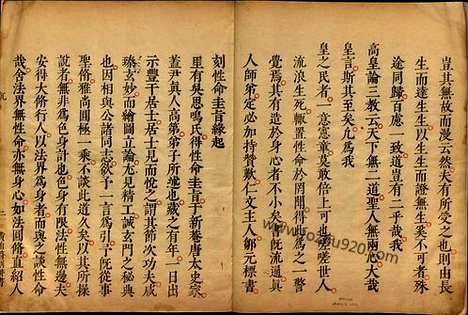 豈其無故而漫云然夫有所受之也則由長
生而達生生以生生而證無生奚不可者殊
途同歸百慮一致道豈有二乎哉我
高皇論三教云天下無二道聖人無兩心大哉
皇言斯其至矣凡為我
皇之民者一意憲章莫敢倍上可也獨嗟世人
流浪生死輒置性命於罔聞得此為之一警
覺焉其有造於身心者不小矣書既流通真
人師弟定必加持贊歎仁文主人鄒元標書
刻性命圭旨緣起
里有吳思鳴氏得性命圭旨於新安唐太史家
蓋尹真人高弟弟子所述也藏之有年一日出
示豐干居士居士見而悅之謂其節次功夫咸
臻玄妙而繪圖立論尤見精工誠玄門之秘典
也因相與公諸同志欲予一言為引子既
聖脩雅尚圓極一乘不談此道久矣以其所操
說者無非為色身計也色身有限法性無邊夫
安得大脩行人以法界為身者而與之談性命
哉舍法界無性命亦無身心如法圓脩直紹人